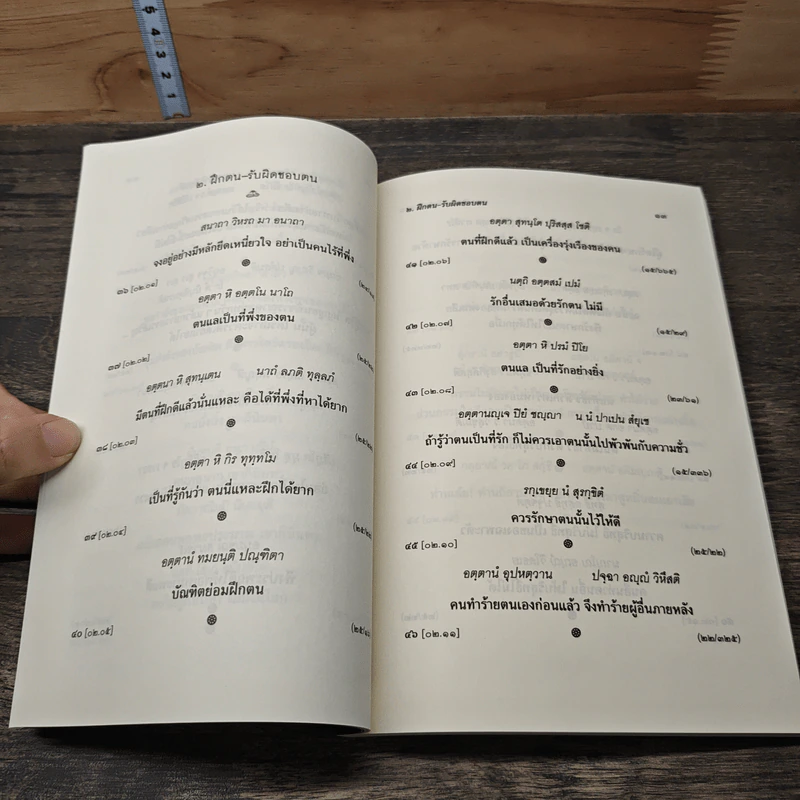 5
4
3
2
1
๒. ฝึกตน-รับผิดชอบตน
สนาถา วิหรถ มา อนาถา
จงอยู่อย่างมีหลักยึดเหนี่ยวใจ อย่าเป็นคนไร้ที่พึ่ง
๓๖ [๐๒.๐๑]
อตฺตา หิ อตฺตโน นาโถ
ตนแลเป็นที่พึ่งของตน
๓๗ [๐๒.๐๒]
อตฺตนา หิ สุทนฺเตน นาถํ ลภติ ทุลฺลภํ
มีตนที่ฝึกดีแล้วนั่นแหละ คือได้ที่พึ่งที่หาได้ยาก
๓๘ [๐๒.๐๓]
อตฺตา หิ กิร ทุทฺทโม
เป็นที่รู้กันว่า ตนนี่แหละฝึกได้ยาก
๓๙ [๐๒.๐๔]
อตฺตานํ ทมยนฺติ ปณฺฑิตา
บัณฑิตย่อมฝึกตน
๔๐ [๐๒.๐๕]
๒. ฝึกตน-รับผิดชอบตน
๑๓
อตฺตา สุทนฺโต ปุริสสฺส โชติ
ตนที่ฝึกดีแล้ว เป็นเครื่องรุ่งเรืองของคน
๔๑ [๐๒.๐๖] (๑๕/๖๖๕)
นตฺถิ อตฺตสมํ เปมํ
รักอื่นเสมอด้วยรักตน ไม่มี
๔๒ [๐๒.๐๗] (๑๕/๒๙)
อตฺตา หิ ปรมํ ปิโย
ตนแล เป็นที่รักอย่างยิ่ง
๔๓ [๐๒.๐๘] (๒๓/๖๑)
อตฺตานญฺเจ ปิยํ ชญฺญา น นํ ปาเปน สํยุเช
ถ้ารู้ว่าตนเป็นที่รัก ก็ไม่ควรเอาตนนั้นไปพัวพันกับความชั่ว
๔๔ [๐๒.๐๙] (๑๕/๓๓๖)
รกฺเขยฺย นํ สุรกฺขิตํ
ควรรักษาตนนั้นไว้ให้ดี
๔๕ [๐๒.๑๐] (๒๕/๒๒)
อตฺตานํ อุปหตฺวาน ปจฺฉา อญฺญํ วิหึสติ
คนทำร้ายตนเองก่อนแล้ว จึงทำร้ายผู้อื่นภายหลัง
๔๖ [๐๒.๑๑] (๒๒/๓๒๕)